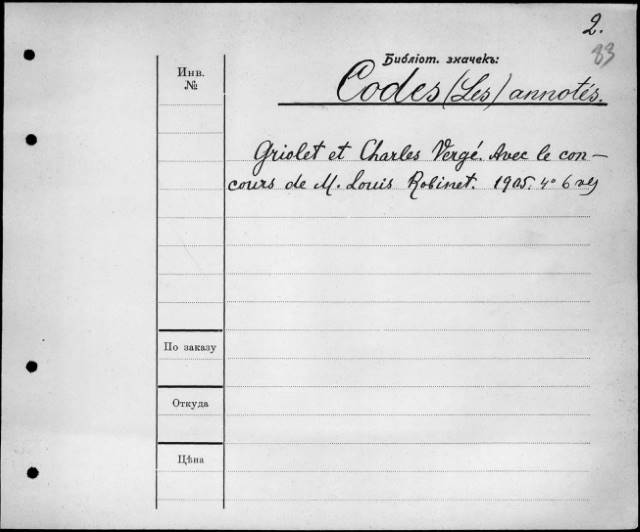 2.
83
Библіот. значекъ:
Codes (Les) annotés.
Инв.
№
Griolet et Charles Vergé. Avec le con-
cours de M. Louis Robinet. 1905. 4° 6
По заказу
Откуда
Цѣна